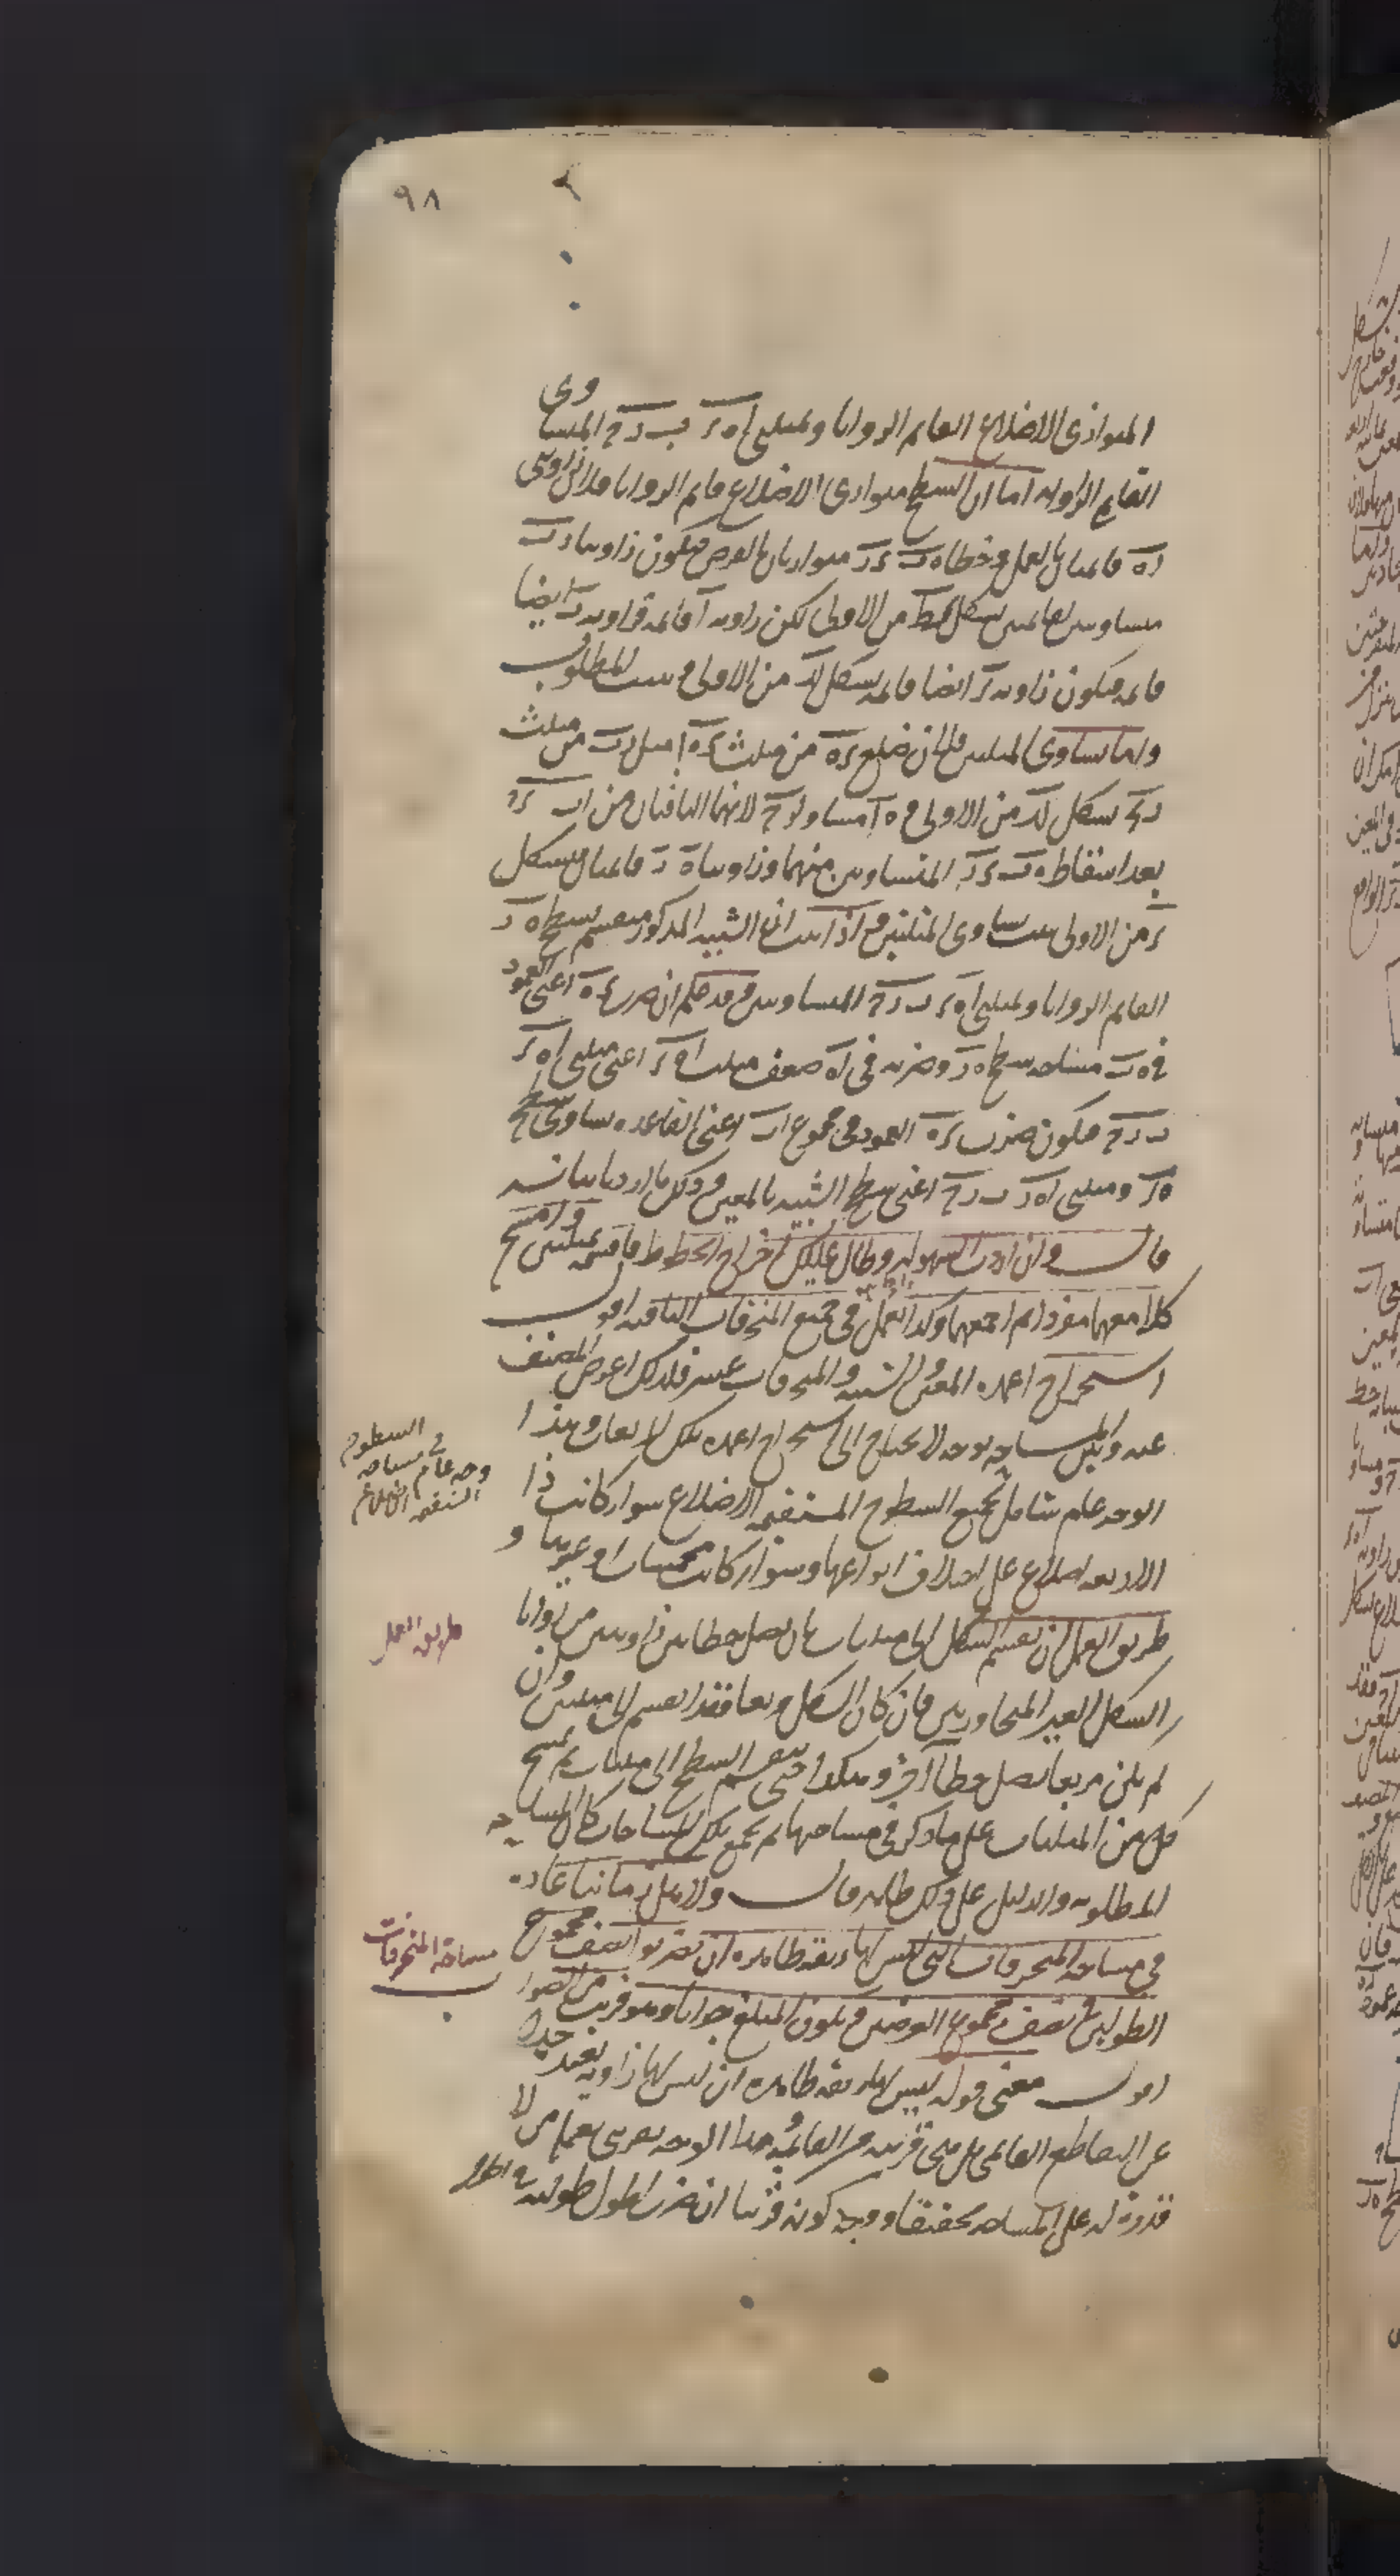 ٩٨
المتوازى الاضلاع القائم الزوايا ومثلثى اه ر ب د ح المتساوى
القايم الزاويه اما ان السطح متوازى الاضلاع قايم الزوايا فلان زاويتى
ره قائمتان بالعمل وخطا ه ب ر د متوازيان بالفرض فيكون زاويتا د ب
مساويتين لقائمتين بشكل كط من الاولى لكن زاويه ه قائمه فزاويه ب ايضا
قائمه فيكون زاويه ر ايضا قائمه بشكل لد من الاولى وثبت المطلوب
واما تساوى المثلثين فلان ضلع ره من مثلث ر ه ا مثل د ب من مثلث
د ب ح بشكل لد من الاولى و ه ا مساو لب ح لانهما الباقيان من اب ر ح
بعد اسقاط ه ب ر د المتساويين منهما وزاويتا ه د قائمتان فبشكل
د من الاولى ثبت تساوى المثلثين واذا ثبت ان الشبيه المذكور منقسم بسطح ه د
القايم الزوايا ومثلثى اه ر ب د ح المتساويين وقد علم ان ضرب ر ه اعنى العمود
فى ه ب مساحه سطح ه د وضربه فى اه ضعف مثلث اه ر اعنى مثلثى اه ر
ب د ح فيكون ضرب ره العمود فى مجموع اب اعنى القاعده يساوى سطح
ه د ومثلثى اه ر ب د ح اعنى سطح الشبيه بالمعين وذلك ما اردنا بيانه
قال وان اردت السهوله وطال عليك اخراج الخطوط فاقسمه بمثلثين وامسح
كلا منهما مفردا ثم اجمعهما وكذا العمل فى جميع المنحرفات الباقيه اقول
استخراج اعمده المعين والشبيه والمنحرفات عسر فلذلك اعرض المصنف
عنه وابين المساحه بوجه لا يحتاج الى استخراج اعمده تلك الاربعات وهذا
الوجه عام شامل لجميع السطوح المستقيمه الاضلاع سواء كانت ذا
الاربعه اضلاع على اختلاف انواعها وسواء كانت مخمسات او غيرها و
طريق العمل ان يقسم الشكل الى مثلثات بان يصل خطا بين زاويتين من زوايا
الشكل الغير المتجاورتين فان كان الشكل مربعا فقد انقسم الى مثلثين وان
لم يكن مربعا تصل خطا اخر وهكذا حتى ينقسم السطح الى مثلثات ثم تمسح
كل من المثلثات على ما ذكر فى مساحتها ثم تجمع تلك المساحات كان المساحه
المطلوبه والدليل على ذلك ظاهر قال ولاهل زماننا عاده
فى مساحه المنحرفات التى ليس لها دقه ظاهره ان يضربوا نصف مجموع
الطولين فى نصف مجموع العرضين ويكون المبلغ جوابا وهو قريب من الصواب
اقول معنى قوله ليس لها دقه ظاهره ان ليس لها زاويه بعيده جدا
عن التقاطع القائمى بل هى قريبه من القائمه وهذا الوجه تقريبى يعمل من لا
قدره له على المساحه تحقيقا ووجه كونه قريبا ان ضرب اطول طوليه فى اطول
وجه عام فى مساحه السطوح المستقيمه الاضلاع
طريق العمل
مساحة المنحرفات